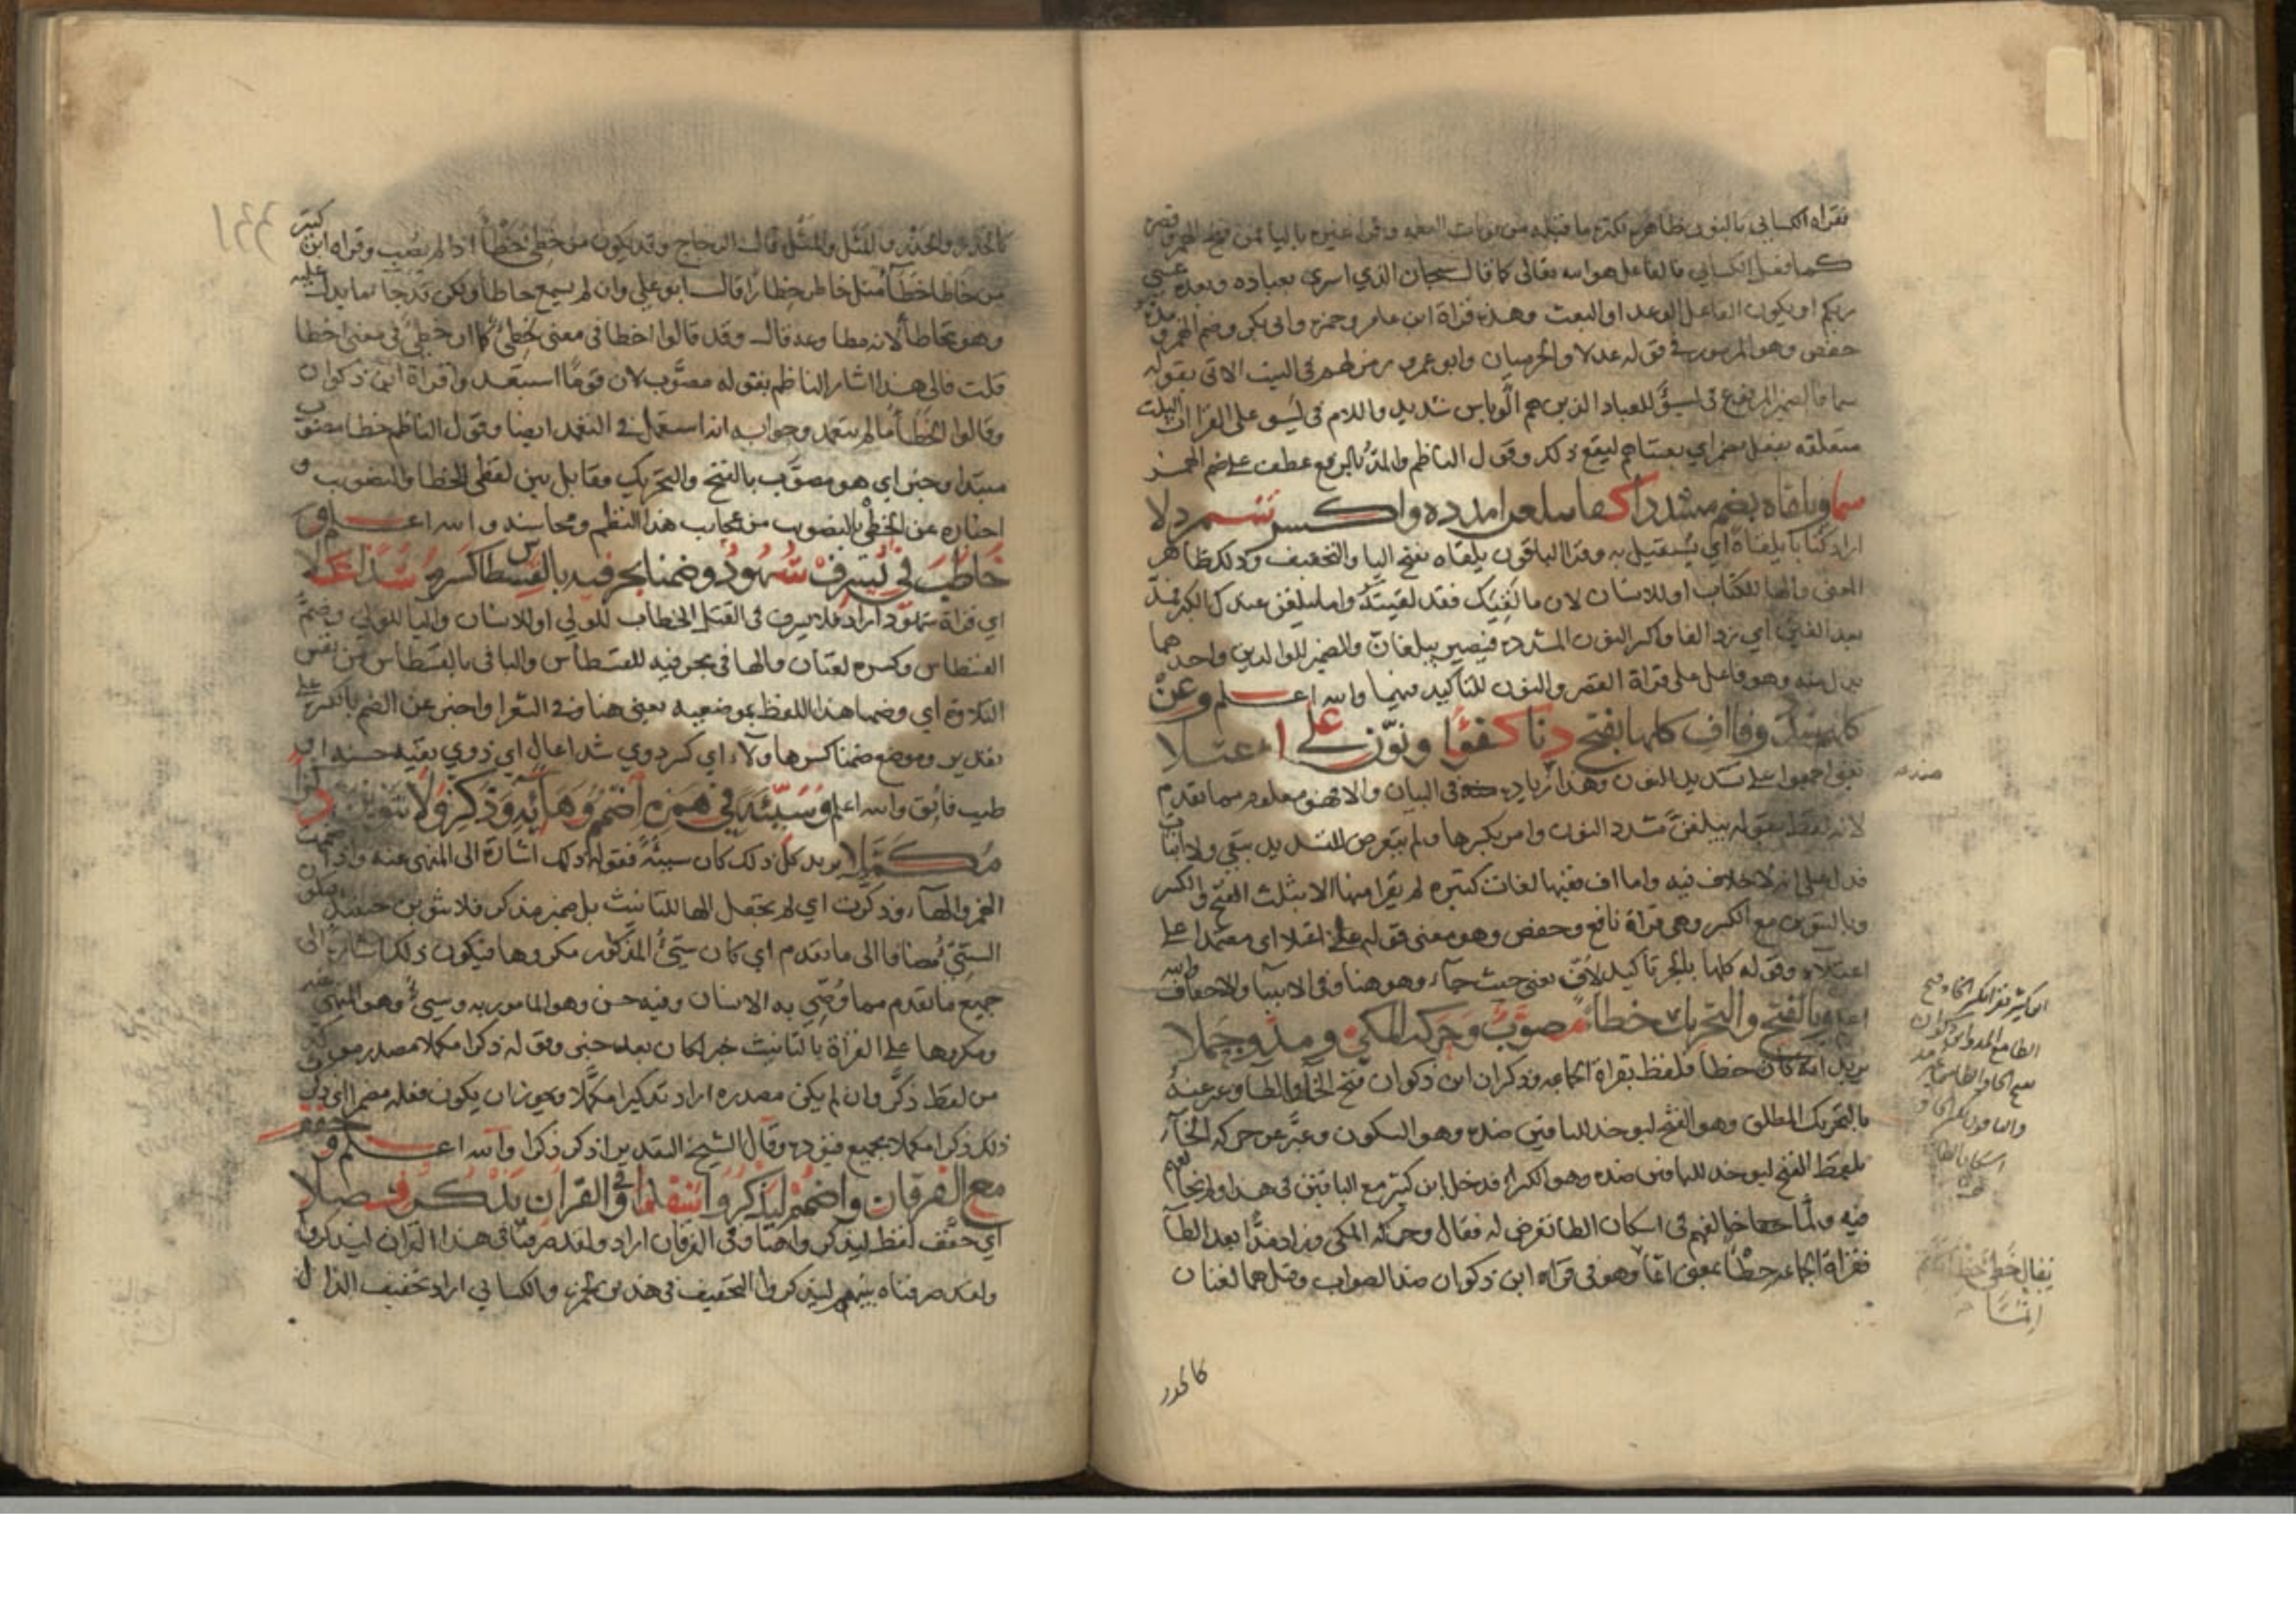 فقراه الكسائي بالنون ظاهره لكثرة ما قبله من نونات العظمة وقراه غيره باليا فمن فتح الهمزة وقصر
كما فعل الكسائي فالفاعل هو الله تعالى كما قال سبحان الذي اسرى بعباده وبعده عسى
ربكم او يكون الفاعل الوعد او البعث وهذه قراة ابن عامر وحمزه وابي بكر وضم الهمزة
حفص وهو المرموز في قوله عدلا والحرميان وابو عمرو رمز لهم في البيت الاتي بقوله
سما فالضمير المرفوع في ليسوؤ للعباد الذين هم الوا باس شديد واللام في ليسو على القراات
متعلقه بفعل مضمر اي بعثناهم ليقع ذلك وقول الناظم والمد بالرفع عطف على ضم الهمز
سما ويلقاه يضم مشددا كفا يبلغن امدده واكسر شمردلا
اراد كتابا يلقاه اي يستقبل به وقرا الباقون يلقاه بفتح اليا والتخفيف وذلك ظاهر
المعنى والها للكتاب او للانسان لان ما لقيك فقد لقيته واما يبلغن عندك الكبر فمد
بعد الغين اي زد الفا واكسر النون المشدده فيصير يبلغان والضمير للوالدين واحدهما
بدل منه وهو فاعل على قراة القصر والنون للتاكيد فيهما والله اعلم وعن
كلهم شدد وفا اف كلها بفتح دنا كفؤا ونون على اعتلا
يعني اجمعوا على تشديد النون وهذا زياده في البيان والا فهو معلوم مما تقدم
لانه لفظ بقوله يبلغن مشدد النون وامر بكسرها ولم يتعرض للتشديد بنفي ولا اثبات
فدل على انه لا خلاف فيه واما اف ففيها لغات كثيره لم يقرا منها الا بثلث الفتح والكسر
وبالتنوين مع الكسر وهي قراة نافع وحفص وهو معنى قوله على اعتلا اي معتمدا على
اعتلاء وقوله كلها بالجر تاكيد لاف يعني حيث جاء وهو هنا وفي الانبيا والاحقاف والله
اعلم وبالفتح والتحريك خطأ مصوب وحركه المكي ومد وجملا
يريد انه كان خطا فلفظ بقراة الجماعه وذكر ان ابن ذكوان فتح الخا والطا وعبر عنه
بالتحريك المطلق وهو الفتح ليوخذ للباقين ضده وهو السكون وعبر عن حركه الخاء
بلفظ الفتح ليوخذ للباقين ضده وهو الكسر فدخل ابن كثير مع الباقين في هذا
فيه ولما خالفهم في اسكان الطا تعرض له فقال وحركه المكي وزاد مدا بعد الطا
فقراة الجماعه خطئا بمعنى اثما وهو في قراه ابن ذكوان ضد الصواب وقيل هما لغتان
كالحذر
ابن كثير يقرا بكسر الخا وفتح
الطا مع المد وابن ذكوان
بفتح الخا والطا من غير مد
والباقون بكسر الخا و
اسكان الطا
يقال خطئ
كالحذر والحذر والمثل والمثل قال الزجاج وقد يكون من خطئ خطأ اذا لم يصب وقراه ابن كثير
من خاطا خطاء مثل خاطر خطارا قال ابو علي وان لم يسمع خاطا ولكن قد جا ما يدل عليه
وهو تخاطا لانه مطاوعه قال وقد قالوا اخطا في معنى خطئ كما ان خطئ في معنى اخطا
قلت فالى هذا اشار الناظم بقوله مصوب لان قوما استبعدوا قراة ابن ذكوان
وقالوا الخطأ ما لم يتعمد وجوابه انه استعمل في التعمد ايضا وقول الناظم خطا مصوب
مبتدا وخبر اي هو مصوب بالفتح والتحريك فقابل بين لفظي الخطا والتصويب و
اخباره عن الخطئ بالتصويب من عجايب هذا النظم ومحاسنه والله اعلم و
خاطب في يسرف شهود وضمنا بحرفيه بالقسطاس كسر شذا علا
اي قراة شهود اراد فلا يسرف في القتل الخطاب للولي او للانسان واليا للولي وضم
القسطاس وكسره لغتان والها في بحرفيه للقسطاس والبا في بالقسطاس من نفس
التلاوة اي وضمنا هذا اللفظ بموضعيه يعني هنا وفي الشعرا واخبر عن الضم بالكسر على
تقدير وموضع ضمنا كسر هاولاء اي كسر ذوي شذا عال اي ذوي بقيه حسنه او
طيب فايق والله اعلم وسيئة في همزه اضمم وهائه وذكر ولا تنوين ذكرا
مكملا يريد كل ذلك كان سيئة فقوله ذلك اشارة الى المنهي عنه واذا ضممت
الهمز والهاء وذكرت اي لم تجعل الها للتانيث بل ضمير مذكر فلا تنوين حينئذ فيكون
السيئ مضافا الى ما تقدم اي كان سيئ المذكور مكروها فيكون ذلك اشارة الى
جميع ما تقدم مما وصي به الانسان وفيه حسن وهو المامور به وسيئ وهو المنهي عنه
ومكروها على القراة بالتانيث خبر لكان بعد خبر وقوله ذكرا مكملا مصدر موكد
من لفظ ذكر وان لم يكن مصدره اراد تذكيرا مكملا ويجوز ان يكون فعله مضمرا اي ذكر
ذلك ذكرا مكملا بجميع قيوده وقال الشيخ التقدير اذكر ذكرا والله اعلم وخفف
مع الفرقان واضمم ليذكروا شفاء وفي الفرقان يذكر فصلا
اي خفف لفظ ليذكروا هنا وفي الفرقان اراد ولقد صرفنا في هذا القران ليذكروا
ولقد صرفناه بينهم ليذكروا التخفيف في هذين لحمزه والكسائي اراد تخفيف الذال